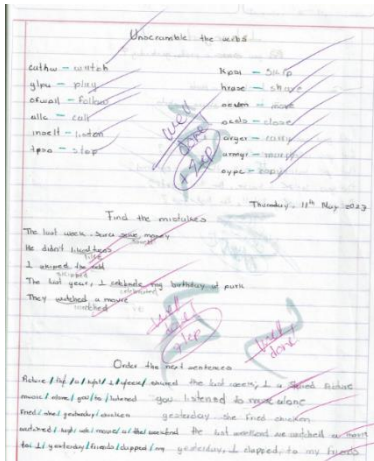 Unscramble the verbs
cathw – watch
ylpa – play
ofwoll – follow
allc – call
inselt – listen
tpso – stop
hrase – share
– move
– close
– carry
– marry
– copy
Thursday, 11th May 2023
well done
+1ep
Find the mistakes
The last week, Sara save money
He didn't liked
liked
I skiped the
skipped
The last year, I celebrate my birthday at park
They watched a movie
watched
well done
+1ep
well done
Order the next sentences
Picture / the / a / / I / / shared the last week, I a shared Picture
music / alone / you / to / listened you listened to music alone
Fried / she / yesterday / chicken yesterday she fried chicken
watched / / we / movie / a / the weekend the last weekend we watched a movie
to / I / yesterday / friends / clapped / my yesterday, I clapped, to my friends